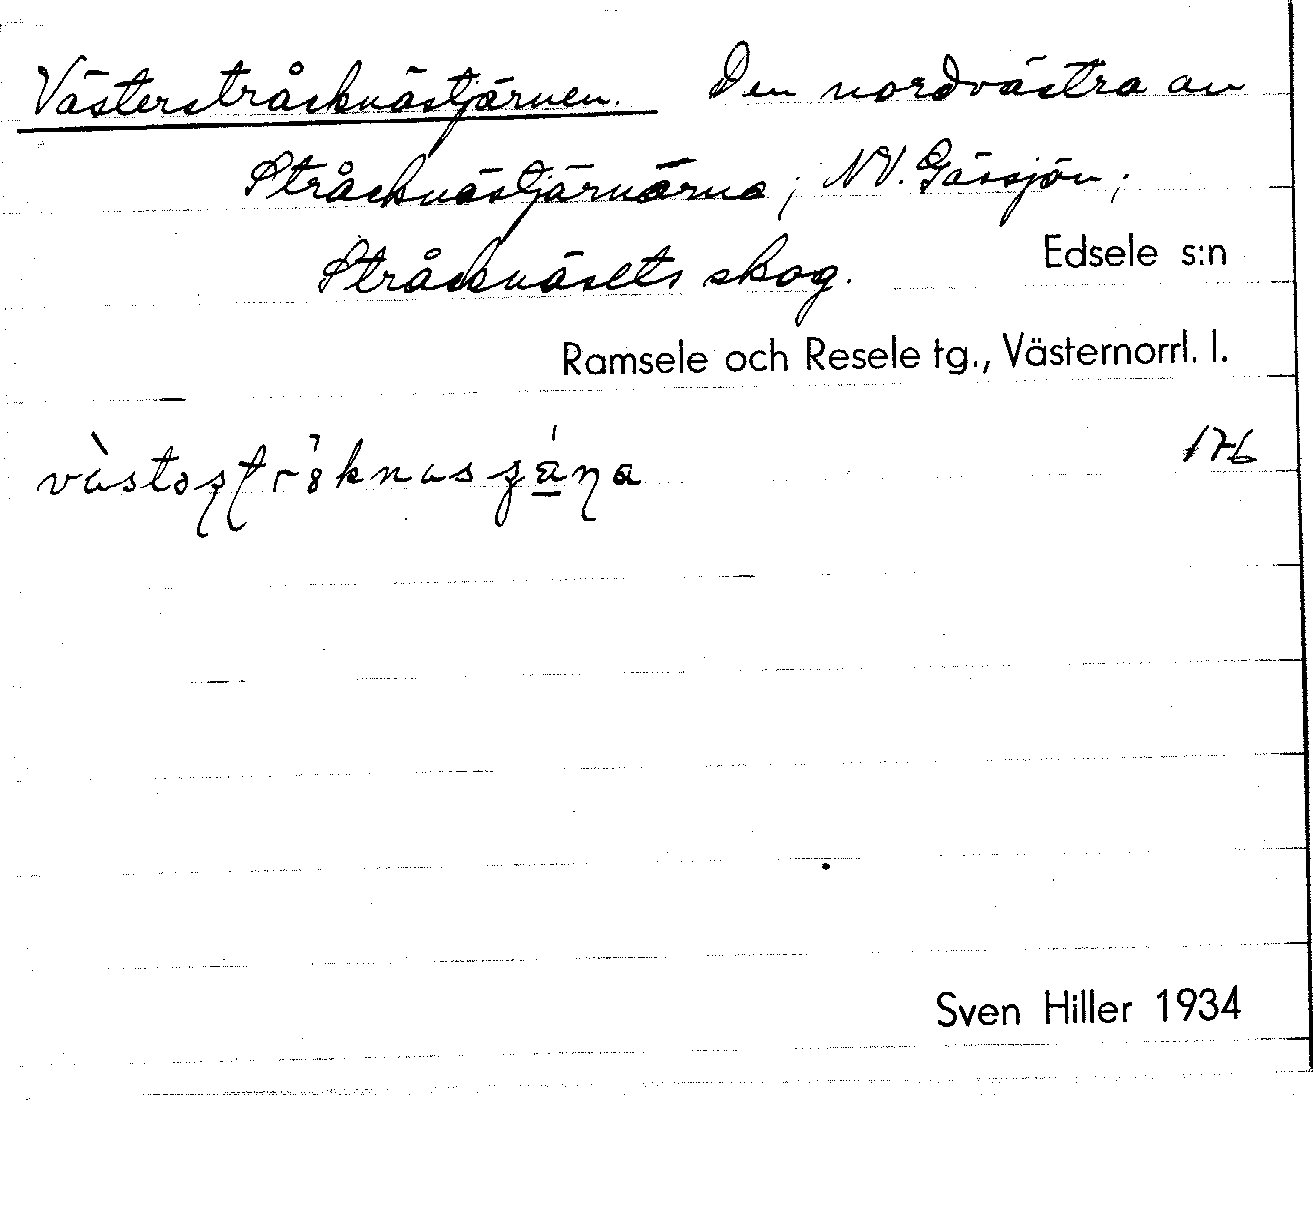 Västersträcknästjärnen. Den nordvästra av
Stråcknästjärnarna; NV. Gässjön;
Stråcknäsets skog. Edsele s:n
Ramsele och Resele tg., Västernorrl. l.
176
Sven Hiller 1934